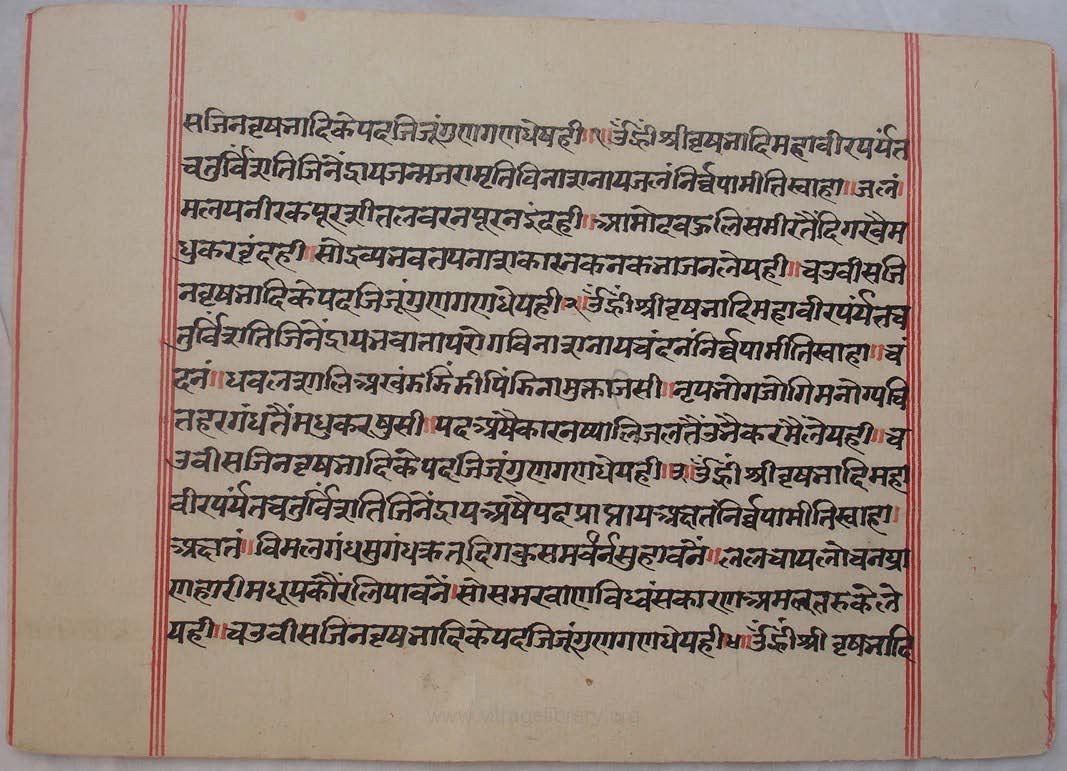 सजिनवृषभादिकेपदजजिजूंगुणगणधेयही॥१॥ॐह्रीं श्रीवृषभादिमहावीरपर्यंत
चतुर्विंशतिजिनेंद्रायजन्मजरामृतिविनाशनायजलंनिर्व्वपामीतिस्वाहा॥जलं
मलयनीरकपूरशीतलवरनपूरनइंदही॥आमोदवऊलिसमीरतैंदिगरवैम
धुकरवृंदही॥सोद्रव्यभवतपनाशकारनकनकभाजनलेयही॥चउवीसजि
नवृषभादिकेपदजजिजूंगुणगणधेयही२॥ॐह्रीं श्रीवृषभादिमहावीरपर्यंतच
तुर्विंशतिजिनेंद्रायभवातापरोगविनाशनायचंदनंनिर्व्वपामीतिस्वाहा॥चं
दनं॥धवलशालिअखंडझिंझीपिंझिनामुक्ताजिसी॥नृपभोगजोगिमनोग्यचि
तहरगंधतैंमधुकरषुसी॥पदअषैकारनष्यालिजलतैंउभैकरमैंलेयही॥च
उवीसजिनवृषभादिकेपदजजिजूंगुणगणधेयही३॥ॐह्रीं श्रीवृषभादिमहा
वीरपर्यंतचतुर्विंशतिजिनेंद्रायअषैपदप्राप्तायअक्षतंनिर्व्वपामीतिस्वाहा॥
अक्षतं॥विमलगंधसुगंधकृतदिगकुसमवर्नसुहावनैं॥ललचायलोचनप्रा
णहारीमधूपकौंरलिपावनैं॥सोसमरवाणविध्वंसकारणअमलतरुकेले
यही॥चउवीसजिनवृषभादिकेपदजजिजूंगुणगणधेयही४॥ॐह्रीं श्री वृषभादि